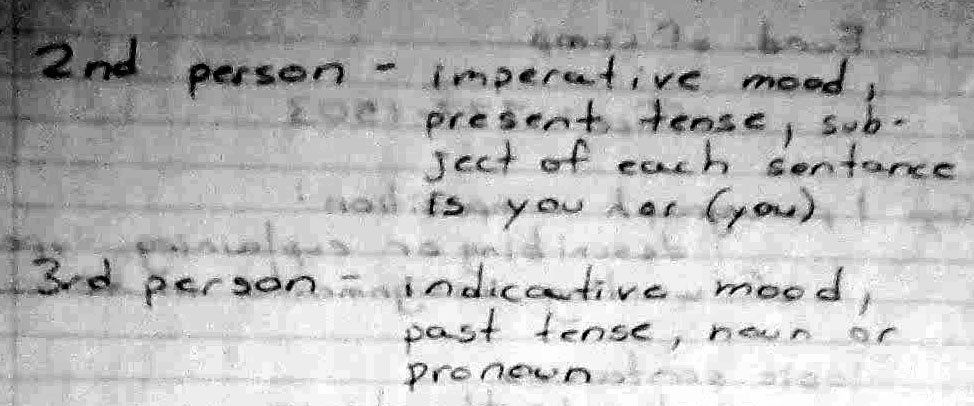 2nd person - imperative mood,
present tense, sub-
ject of each sentance
is you or (you)
3rd person - indicative mood,
past tense, noun or
pronoun